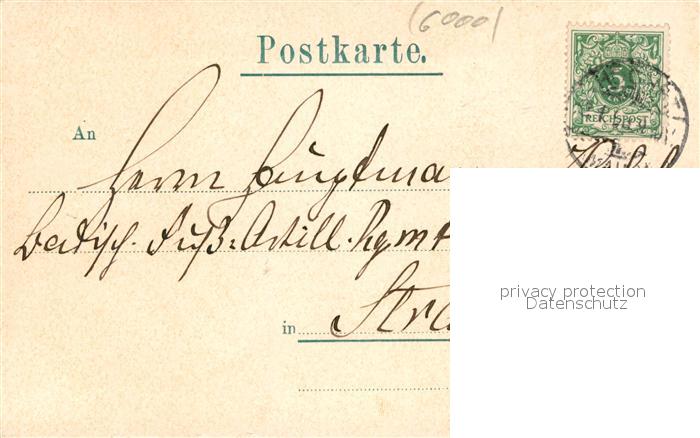 (6000)
Postkarte.
5
REICHSPOST
An
Herrn Hauptma
Badisch. Fuß=Artill. Rgmt
in Stra
privacy protection
Datenschutz